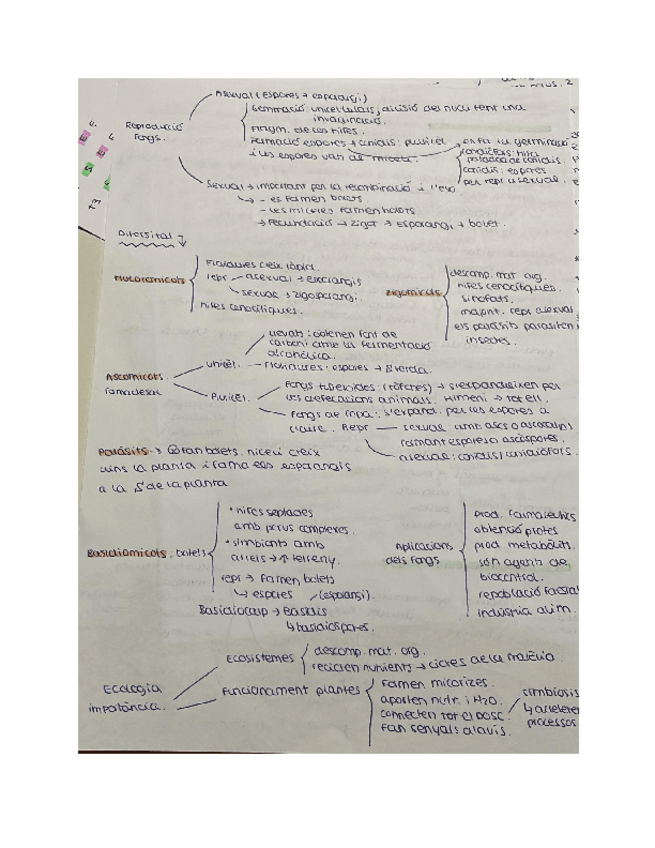 Asexual (espores → esporangi.)
Gemmació: unicel·lulars, divisió del nucli fent una
invaginació.
Reproducció
fongs.
Fragm. de les hifes.
Formació espores → conidis: pluricel
i les espores van de
on fa la germinació
conidiòfors: hifa
conidis: espores
per repr asexual.
Sexual → important per la recombinació i l'evo
- es formen bolets
- les miceles formen bolets
→ fecundació → zigot → esporangi → bolet.
Diversitat →
Mucoromicots
Floridures creix ràpid.
repr asexual → esporangis
sexual → zigosporangi.
hifes cenocítiques.
zigomicots
descomp. mat org.
hifes cenocítiques.
majorit. repr asexual
els paràsits parasiten
insectes.
Ascomicots
unicel.
llevats: obtenen font de
carboni amb la fermentació
alcohòlica.
Floridures: espores →
Pluricel
Fongs tuberoides: (tòfones) → s'expandeixen per
les defecacions animals. Himeni → tot ell.
Fongs de copa: s'expand. per les espores a
l'aire. Repr
sexual amb ascs o ascocarps
formant espores o ascòspores.
asexual: conidis / conidiòfors.
Paràsits → fan bolets. miceli creix
dins la planta i forma els esporangis
a la S de la planta
Basidiomicots, bolets
• hifes septades
amb porus complexes.
• simbionts amb
arrels → ↑ terreny.
repr → formen bolets
↳ espores (esporangi).
Basidiocarp → Basidis
↳ basidiospores.
Aplicacions
dels fongs
prod. farmacèutics
obtenció protes
prod metabòlits.
són agents de
biocontrol.
repoblació forestal
indústria alim.
Ecologia
importància.
Ecosistemes
descomp. mat. org.
reciclen nutrients → cicles de la matèria.
Funcionament plantes
formen micorizes.
aporten nutr. i H2O.
connecten tot el bosc.
fan senyals d'avís.
simbiosis
↳ acceleren
processos